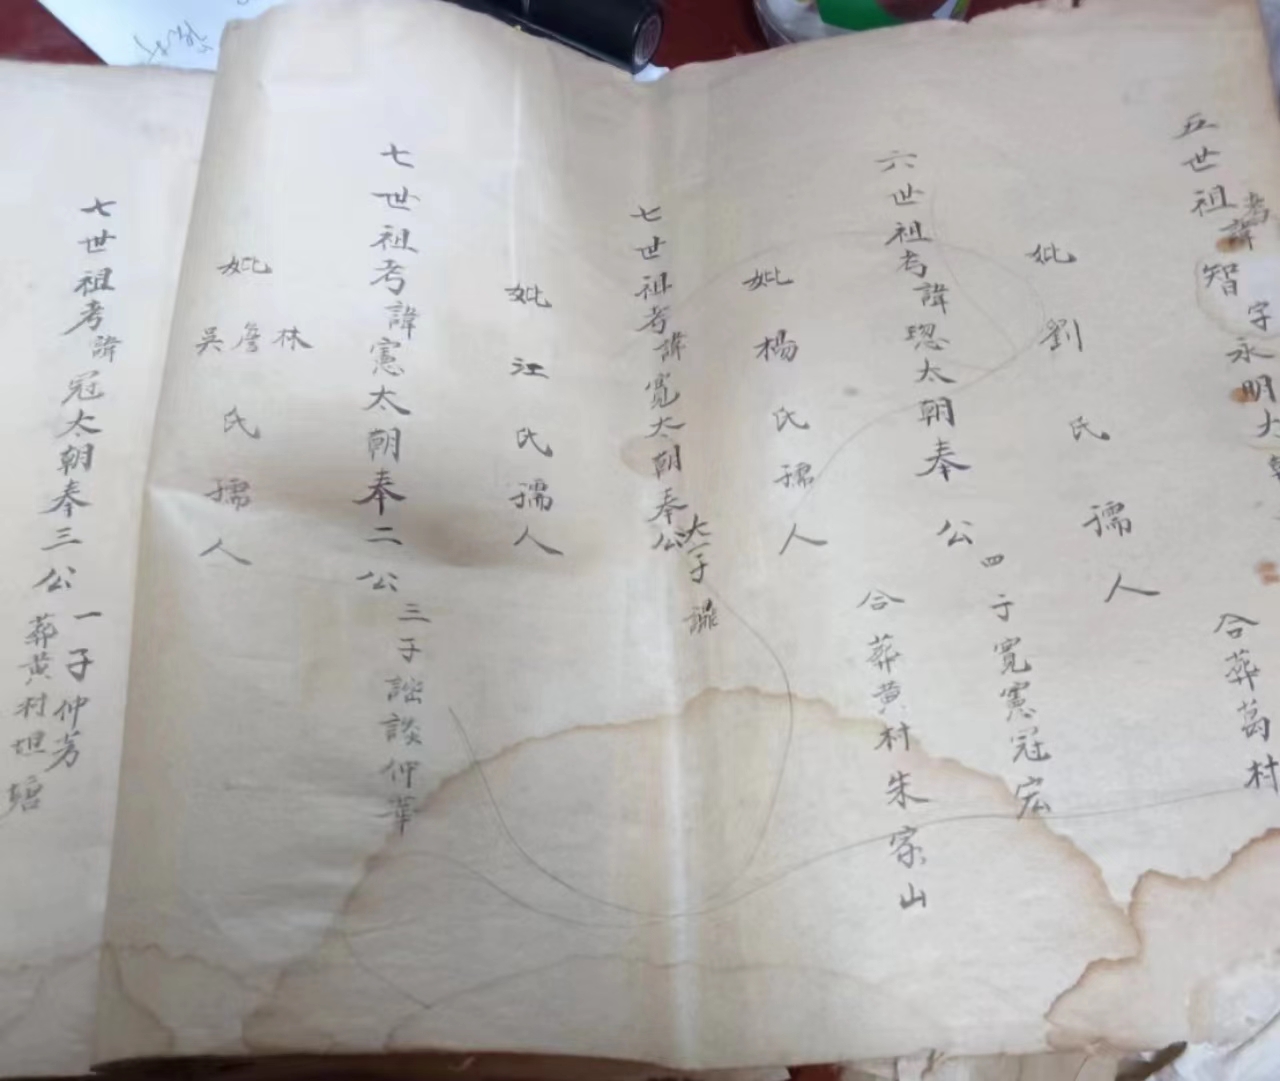 五世祖考諱智字永明太朝
妣劉氏孺人
合葬葛村
六世祖考諱璁太朝奉公
四子寬憲冠宏
妣楊氏孺人
合葬黄村朱家山
七世祖考諱寬太朝奉大公
一子
妣江氏孺人
七世祖考諱憲太朝奉二公
三子 談仲華
妣林詹吳氏孺人
七世祖考諱冠太朝奉三公
一子仲芳
葬黄村坦塘